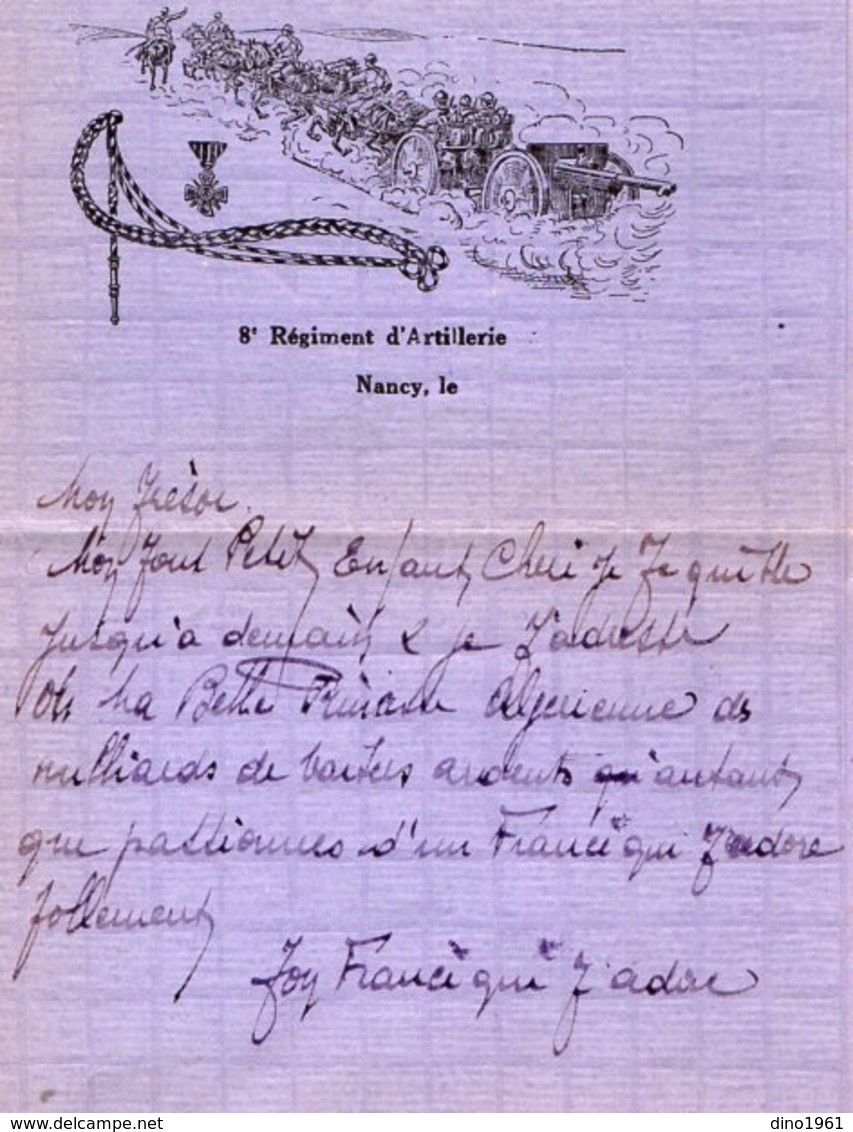 8e Régiment d'Artillerie
Nancy, le
Mon Trèsor.
Mon Tout Petit Enfant Cheri je Te quitte
jusqu'a demain & je T'adresse
Oh Ma Belle Princesse Algerienne des
milliards de baisers ardents qu'autant
que passionnes d'un Francé qui T'adore
follement
Ton Francé qui T'adore
www.delcampe.net
dino1961